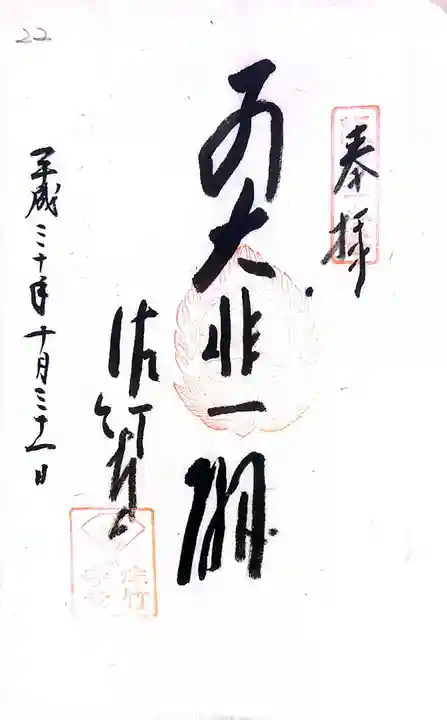 奉拝
大悲閣
佐竹寺
平成三十年十月三十一日
22